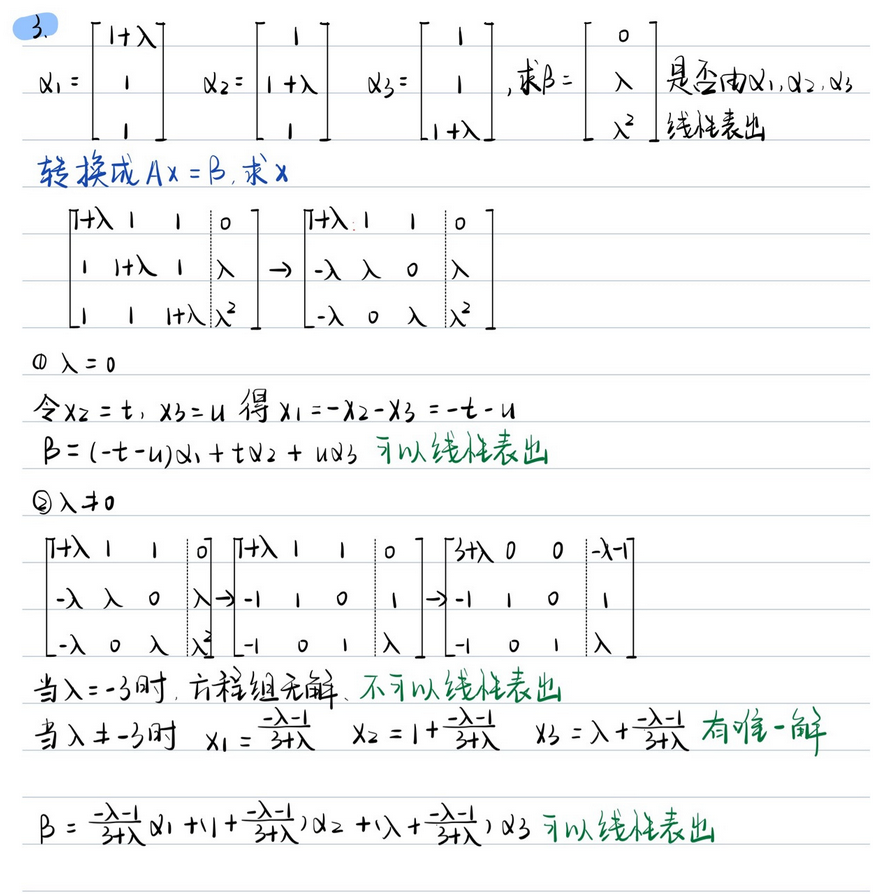 3.
α₁ = [1+λ 1 1] α₂ = [1 1+λ 1] α₃ = [1 1 1+λ] , 求β = [0 λ λ²] 是否由α₁,α₂,α₃
线性表出
转换成 Ax = β, 求x
[1+λ 1 1 | 0] [1+λ 1 1 | 0]
[1 1+λ 1 | λ] → [-λ λ 0 | λ]
[1 1 1+λ | λ²] [-λ 0 λ | λ²]
① λ = 0
令x₂ = t, x₃ = u 得 x₁ = -x₂-x₃ = -t-u
β = (-t-u)α₁ + tα₂ + uα₃ 可以线性表出
② λ ≠ 0
[1+λ 1 1 | 0] [1+λ 1 1 | 0] [3+λ 0 0 | -λ-1]
[-λ λ 0 | λ] → [-1 1 0 | 1] → [-1 1 0 | 1]
[-λ 0 λ | λ²] [-1 0 1 | λ] [-1 0 1 | λ]
当λ = -3时, 方程组无解、不可以线性表出
当λ ≠ -3时 x₁ = (-λ-1)/(3+λ) x₂ = 1 + (-λ-1)/(3+λ) x₃ = λ + (-λ-1)/(3+λ) 有唯一解
β = (-λ-1)/(3+λ) α₁ + (1 + (-λ-1)/(3+λ)) α₂ + (λ + (-λ-1)/(3+λ)) α₃ 可以线性表出